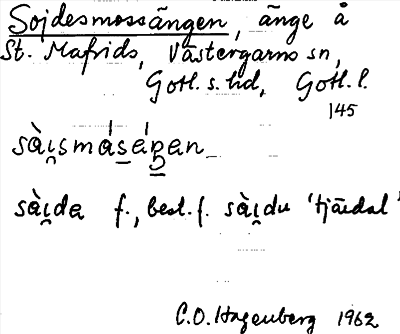 Sojdesmossängen, änge å
St. Mafrids, Västergarns sn,
Gotl. s. hd, Gotl. l.
145
sàı̯smás̱áŋ̱ən
sàı̯də f., best. f. sàı̯du 'tjärdal'
C.O. Hagenberg 1962